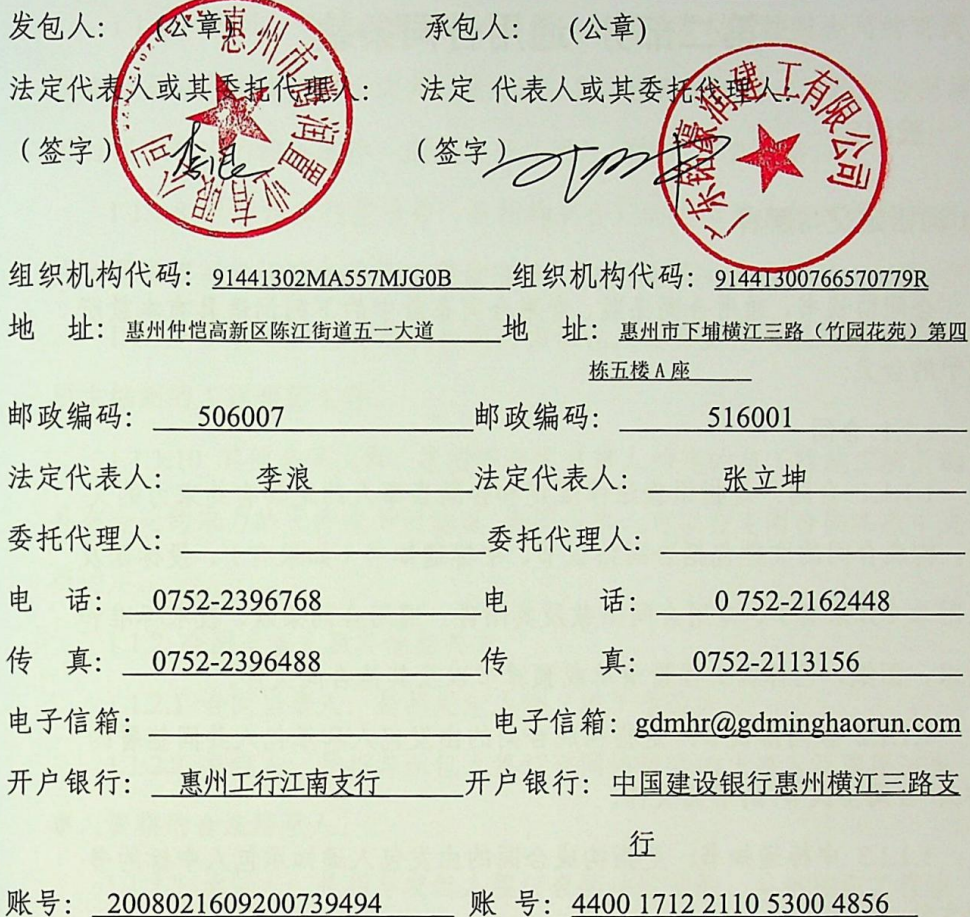 发包人： (公章) 承包人： (公章)
法定代表人或其委托代理人： 法定 代表人或其委托代理人：
（签字） （签字）
惠州市
润置业有限公司
广东铭濠润建工有限公司
组织机构代码：91441302MA557MJG0B 组织机构代码：91441300766570779R
地 址：惠州仲恺高新区陈江街道五一大道 地 址：惠州市下埔横江三路（竹园花苑）第四
栋五楼A座
邮政编码： 506007 邮政编码： 516001
法定代表人： 李浪 法定代表人： 张立坤
委托代理人： 委托代理人：
电 话： 0752-2396768 电 话： 0 752-2162448
传 真： 0752-2396488 传 真： 0752-2113156
电子信箱： 电子信箱：gdmhr@gdminghaorun.com
开户银行： 惠州工行江南支行 开户银行：中国建设银行惠州横江三路支
行
账号： 2008021609200739494 账 号：4400 1712 2110 5300 4856